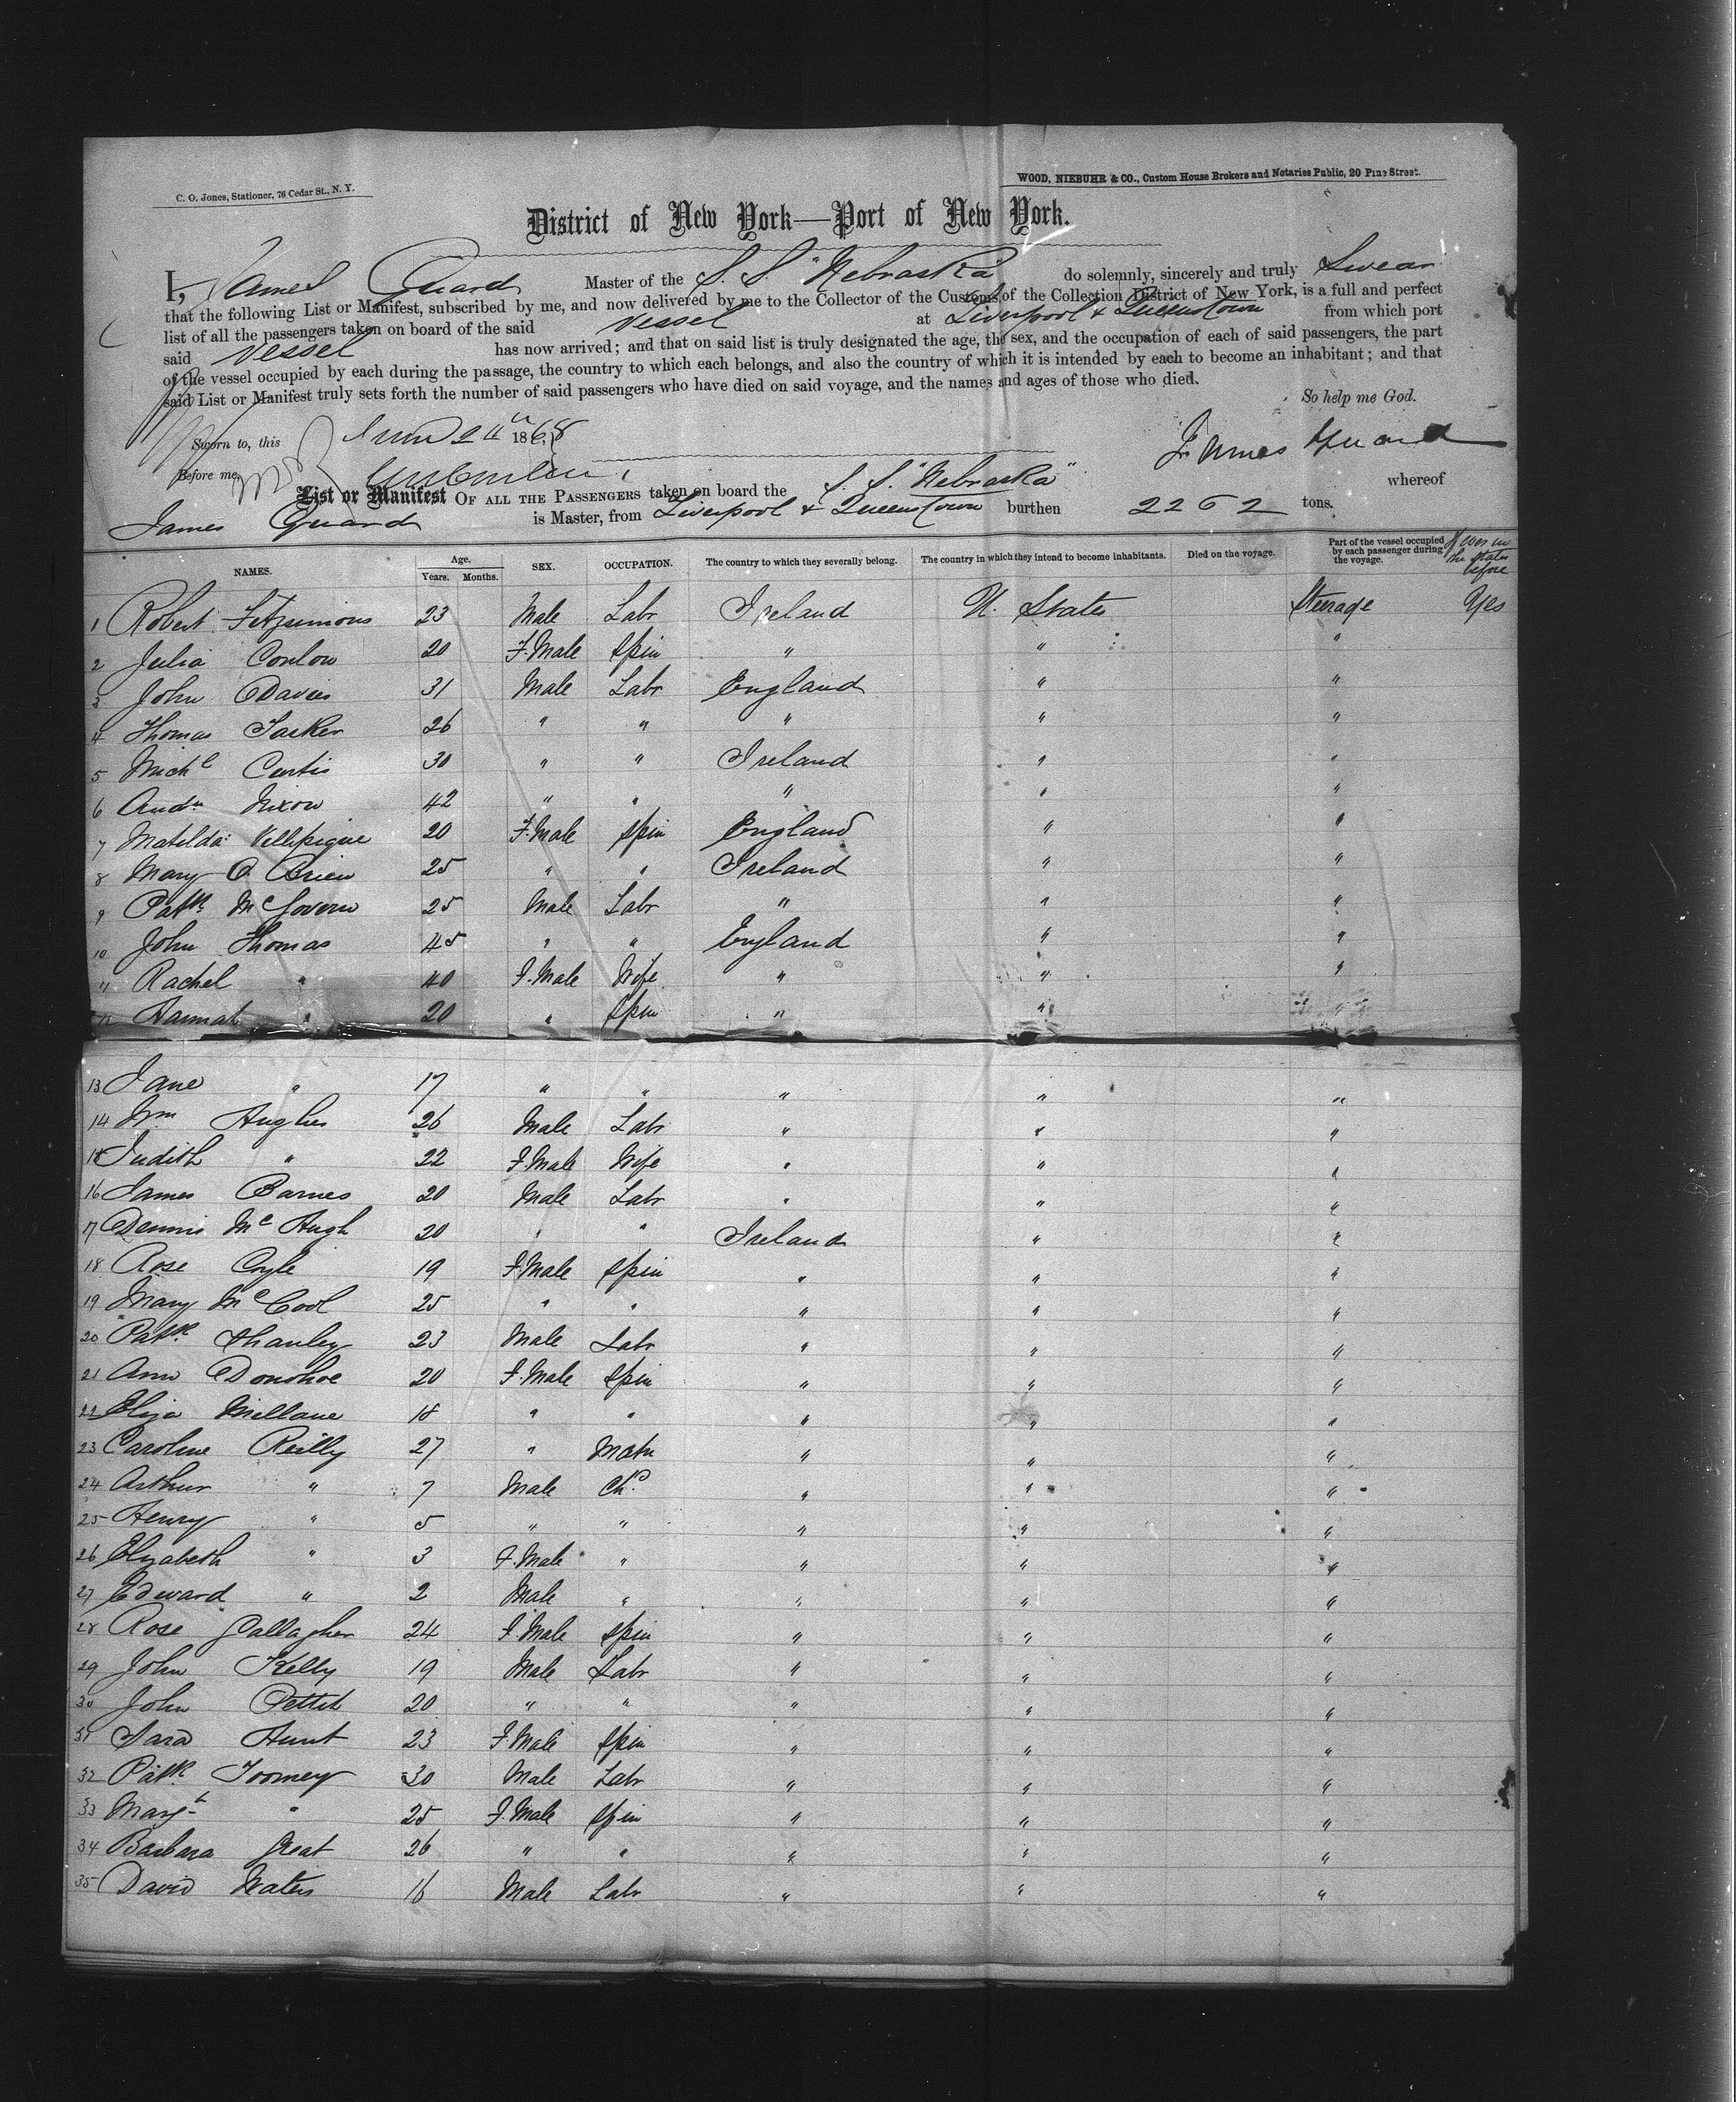 C. O. Jones, Stationer, 76 Cedar St., N. Y.
WOOD, NIEBUHR & CO., Custom House Brokers and Notaries Public, 20 Pine Street.
District of New York—Port of New York.
I, James Guard Master of the S. S. "Nebraska" do solemnly, sincerely and truly Swear
that the following List or Manifest, subscribed by me, and now delivered by me to the Collector of the Customs of the Collection District of New York, is a full and perfect
list of all the passengers taken on board of the said Vessel at Liverpool & Queenstown from which port
said Vessel has now arrived; and that on said list is truly designated the age, the sex, and the occupation of each of said passengers, the part
of the vessel occupied by each during the passage, the country to which each belongs, and also the country of which it is intended by each to become an inhabitant; and that
said List or Manifest truly sets forth the number of said passengers who have died on said voyage, and the names and ages of those who died.
So help me God.
Sworn to, this 1868
James Guard
Before me,
List or Manifest OF ALL THE PASSENGERS taken on board the S. S. "Nebraska" whereof
James Guard is Master, from Liverpool & Queenstown burthen 2262 tons.
NAMES. Age. Years. Months. SEX. OCCUPATION. The country to which they severally belong. The country in which they intend to become inhabitants. Died on the voyage. Part of the vessel occupied by each passenger during the voyage. If ever in the States before
1 Robert Fitzsimons 23 Male Labr Ireland U. States Steerage Yes
2 Julia Conlon 20 F.Male Spin " " "
3 John Davies 31 Male Labr England " "
4 Thomas Tasker 26 " " " " "
5 Michl Curtis 30 " " Ireland " "
6 Andw Nixon 42 " " " " "
7 Matilda Villepigue 20 F.Male Spin England " "
8 Mary O Brien 25 " " Ireland " "
9 Patk McGovern 25 Male Labr " " "
10 John Thomas 45 " " England " "
11 Rachel " 40 F.Male Wife " " "
12 Hannah " 20 " Spin " " "
13 Jane " 17 " " " " "
14 Wm Hughes 26 Male Labr " " "
15 Judith " 22 F.Male Wife " " "
16 James Barnes 20 Male Labr " " "
17 Dennis McHugh 20 " " Ireland " "
18 Rose Coyle 19 F.Male Spin " " "
19 Mary McCool 25 " " " " "
20 Patk Shanley 23 Male Labr " " "
21 Ann Donohoe 20 F.Male Spin " " "
22 Eliza Millane 18 " " " " "
23 Caroline Reilly 27 " Matn " " "
24 Arthur " 7 Male Chd " " "
25 Henry " 5 " " " " "
26 Elizabeth " 3 F.Male " " " "
27 Edward " 2 Male " " " "
28 Rose Gallagher 24 F.Male Spin " " "
29 John Kelly 19 Male Labr " " "
30 John Pettit 20 " " " " "
31 Sara Hunt 23 F.Male Spin " " "
32 Patk Toomey 30 Male Labr " " "
33 Margt " 25 F.Male Spin " " "
34 Barbara Great 26 " " " " "
35 David Waters 16 Male Labr " " "